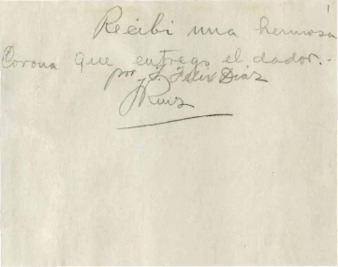 Recibi una hermosa
Corona que entrego el dador.-
por F. Felix Diaz
J Ruiz